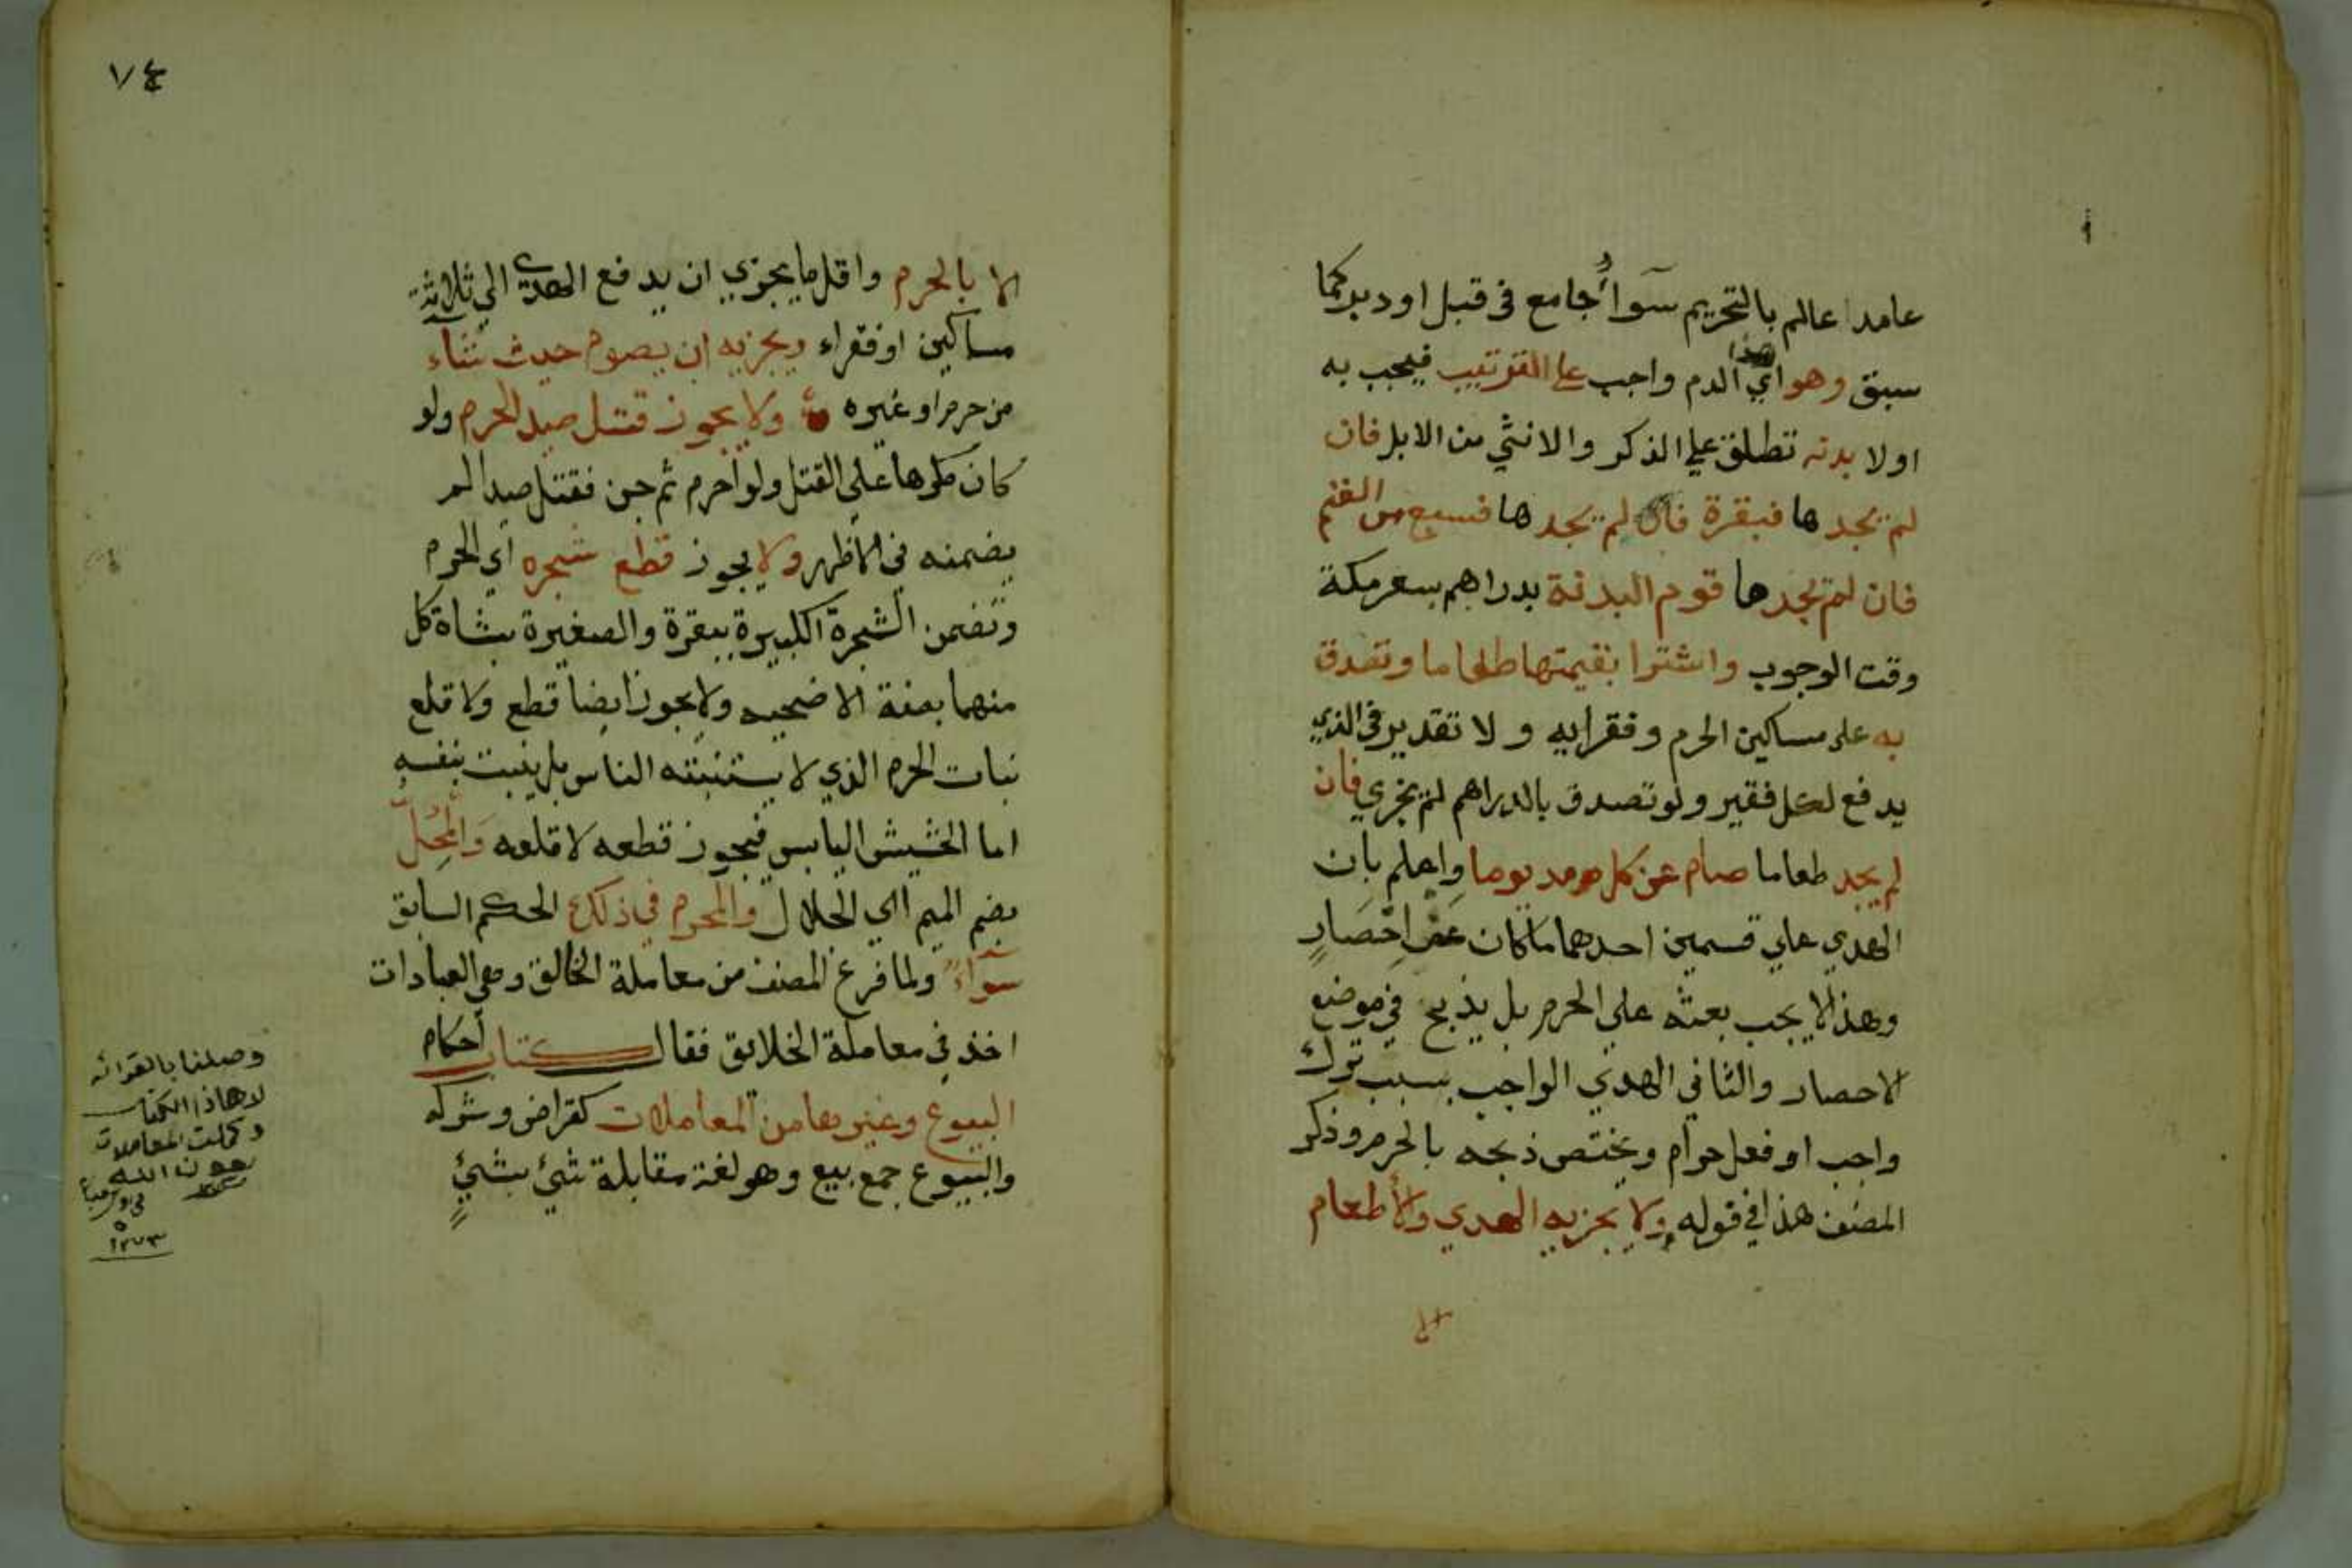 عامدا عالم بالتحريم سوآأجامع في قبل او دبر كما
سبق وهو اي هذا الدم واجب على الترتيب فيجب به
اولا بدنه تطلق على الذكر والانثي من الابل فان
لم يجدها فبقرة فان لم يجدها فسبع من الغنم
فان لم يجدها قوم البدنة بدراهم بسعر مكة
وقت الوجوب واشترا بقيمتها طعاما وتصدق
به على مساكين الحرم وفقرايه ولا تقدير في الذي
يدفع لكل فقير ولو تصدق بالدراهم لم يجزي فان
لم يجد طعاما صام عن كل مد يوما واعلم بان
الهدي علي قسمين احدهما ما كان عن احصار
وهذا لا يجب بعثه علي الحرم بل يذبح في موضع
الاحصار والثاني الهدي الواجب بسبب ترك
واجب او فعل حرام ويختص ذبحه بالحرم وذكر
المصنف هذا في قوله ولا يجزيه الهدي ولا أطعام
الا
٧٤
الا بالحرم واقل ما يجزي ان يدفع الهدي الي ثلاثة
مساكين او فقراء ويجزيه ان يصوم حيث شآء
من حرم او غيره ولا يجوز قتل صيد الحرم ولو
كان مكرها علي القتل ولو احرم ثم جن فقتل صيدا لم
يضمنه في الاظهر ولا يجوز قطع شجره اي الحرم
وتضمن الشجرة الكبيرة ببقرة والصغيرة بشاة كل
منهما بصفة الاضحيه ولا يجوز ايضا قطع ولا قلع
نبات الحرم الذي لا يستنبته الناس بل ينبت بنفسه
اما الحشيش اليابس فيجوز قطعه لا قلعه والمُحِلّ
بضم الميم اي الحلال والمحرم في ذلك الحكم السابق
سوآء ولما فرغ المصنف من معاملة الخالق وهي العبادات
اخذ في معاملة الخلايق فقال كتاب أحكام
البيوع وغيرها من المعاملات كقراض وشركه
والبيوع جمع بيع وهو لغة مقابلة شيْ بشيْ
وصلنا بالقرائه
لاهاذا الكتاب
وكملت المعاملات
بعون الله